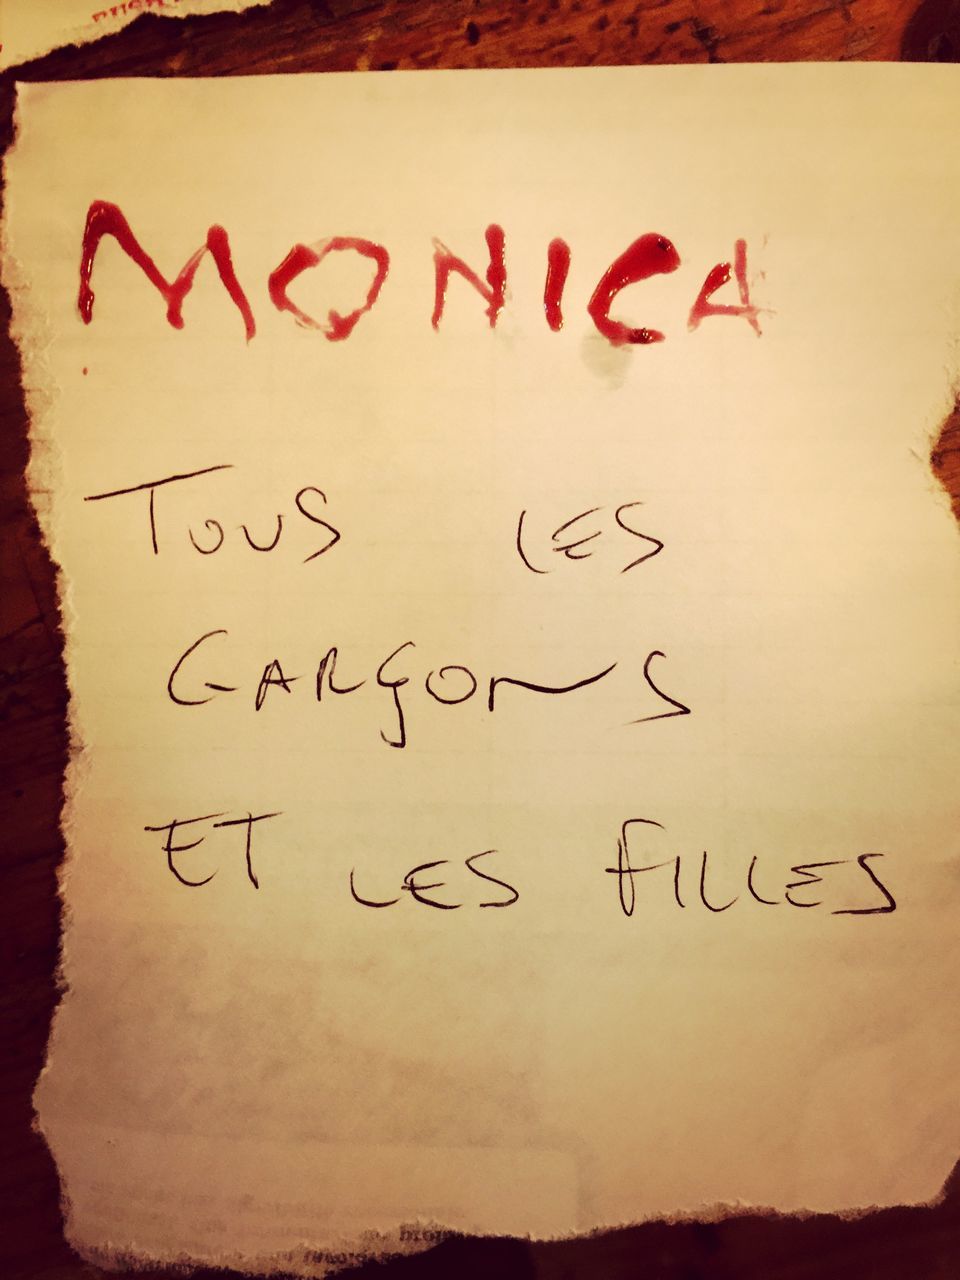 MONICA
TOUS LES
GARÇONS
ET LES FILLES